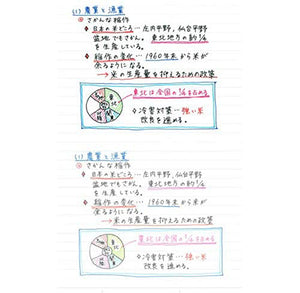 (1) 農業と漁業
◎ さかんな稲作
◇ 日本の米どころ… 庄内平野、仙台平野
盆地でもさかん。東北地方の約1/4
を生産している。
◇ 稲作の変化… 1960年末から米が
余るようになる。
→ 米の生産量を抑えるための政策
東北
東北は全国の1/4を占める
◇ 冷害対策… 強い米
改良を進める。
(1) 農業と漁業
◎ さかんな稲作
◇ 日本の米どころ… 庄内平野、仙台平野
盆地でもさかん。東北地方の約1/4
を生産している。
◇ 稲作の変化… 1960年末から米が
余るようになる。
→ 米の生産量を抑えるための政策
東北
東北は全国の1/4を占める
◇ 冷害対策… 強い米
改良を進める。